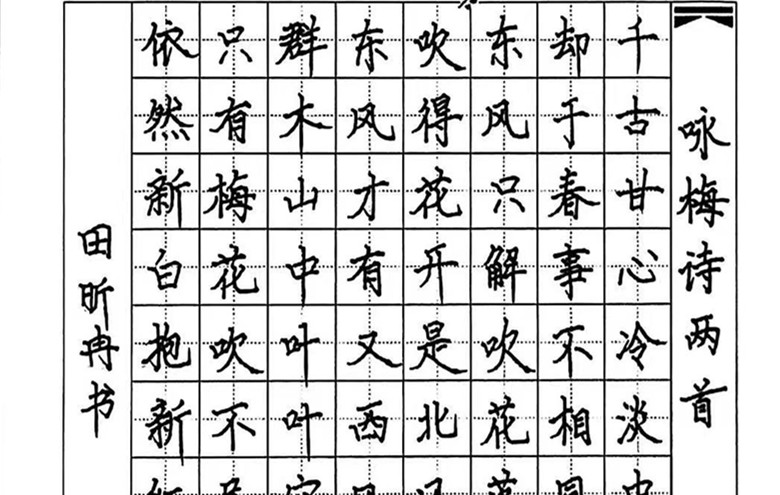 咏梅诗两首
千古甘心冷淡中
却于春事不相同
东风只解吹花落
吹得花开是北风
东风才有又西风
群木山中叶叶空
只有梅花吹不尽
依然新白抱新红
田昕冉书